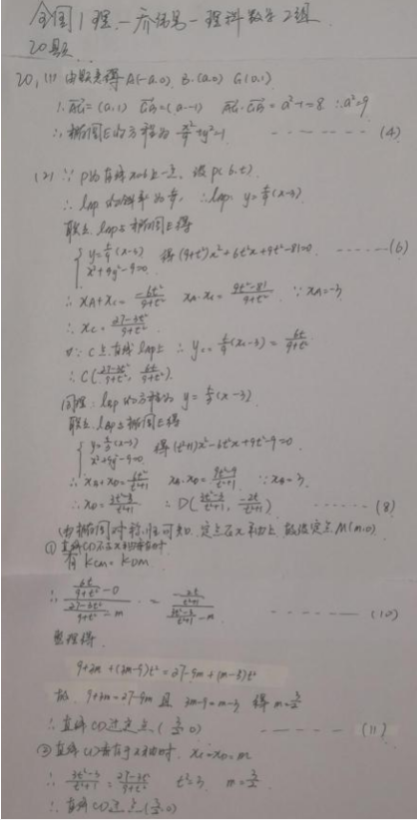 全国1理-乔海岛-理科数学2组
20题
20. (1) 由题意得 A(-a,0) B(a,0) G(0,1)
∴ AG=(a,1) GB=(a,-1) AG·GB=a²-1=8 ∴a²=9
∴椭圆E的方程为 x²/9+y²=1 ------ (4)
(2) ∵ P为直线x=6上一点, 设P(6,t)
联立 lAP与椭圆E得
x²+9y²-9=0 得 (9+t²)x²+6t²x+9t²-81=0 ------ (6)
∴ xA+xC= -6t²/(9+t²) xA·xC= (9t²-81)/(9+t²) ∵ xA=-3
∴ xC= (27-3t²)/(9+t²)
又∵ C在直线lAP上 ∴ y=t/9(xC+3)= 6t/(9+t²)
∴ C((27-3t²)/(9+t²), 6t/(9+t²))
同理: lBP的方程为 y=t/3(x-3)
联立 lBP与椭圆E得
{ y=t/3(x-3)
x²+9y²-9=0 得 (t²+1)x²-6t²x+9t²-9=0
∴ xB+xD= 6t²/(t²+1) xB·xD= (9t²-9)/(t²+1) ∵xB=3
∴ xD= (3t²-3)/(t²+1) ∴ D((3t²-3)/(t²+1), -2t/(t²+1)) ------ (8)
由椭圆对称性可知, 定点在x轴上, 故设定点M(m,0)
有 kCM=kDM
------ (10)
整理得
9+3m+(3m-9)t²=27-9m+(m-3)t²
故 9+3m=27-9m 且 3m-9=m-3 得 m=3/2
∴直线CD过定点(3/2,0) ------ (11)
②直线CD垂直于x轴时, xC=xD=m
∴ (3t²-3)/(t²+1)=(27-3t²)/(9+t²) t²=3 m=3/2
∴直线CD过点(3/2,0)